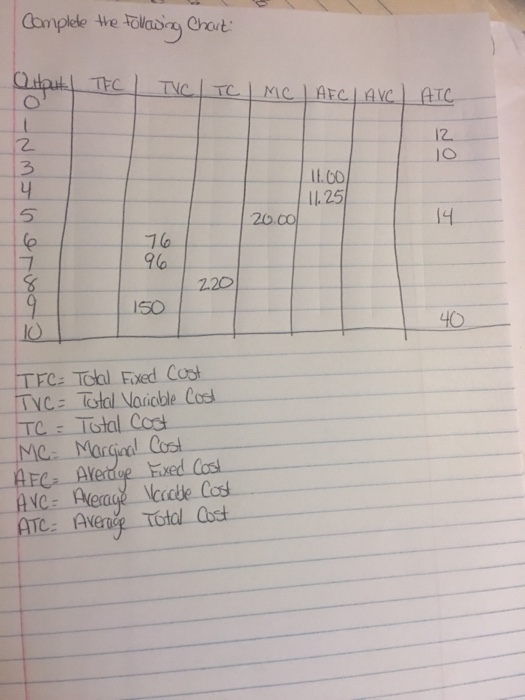 Complete the Following Chart:
Output TFC TVC TC MC AFC AVC ATC
0
1 12
2 10
3 11.00
4 11.25
5 20.00 14
6 76
7 96
8 220
9 150
10 40
TFC= Total Fixed Cost
TVC= Total Variable Cost
TC = Total Cost
MC= Marginal Cost
AFC= Average Fixed Cost
AVC= Average Variable Cost
ATC= Average Total Cost